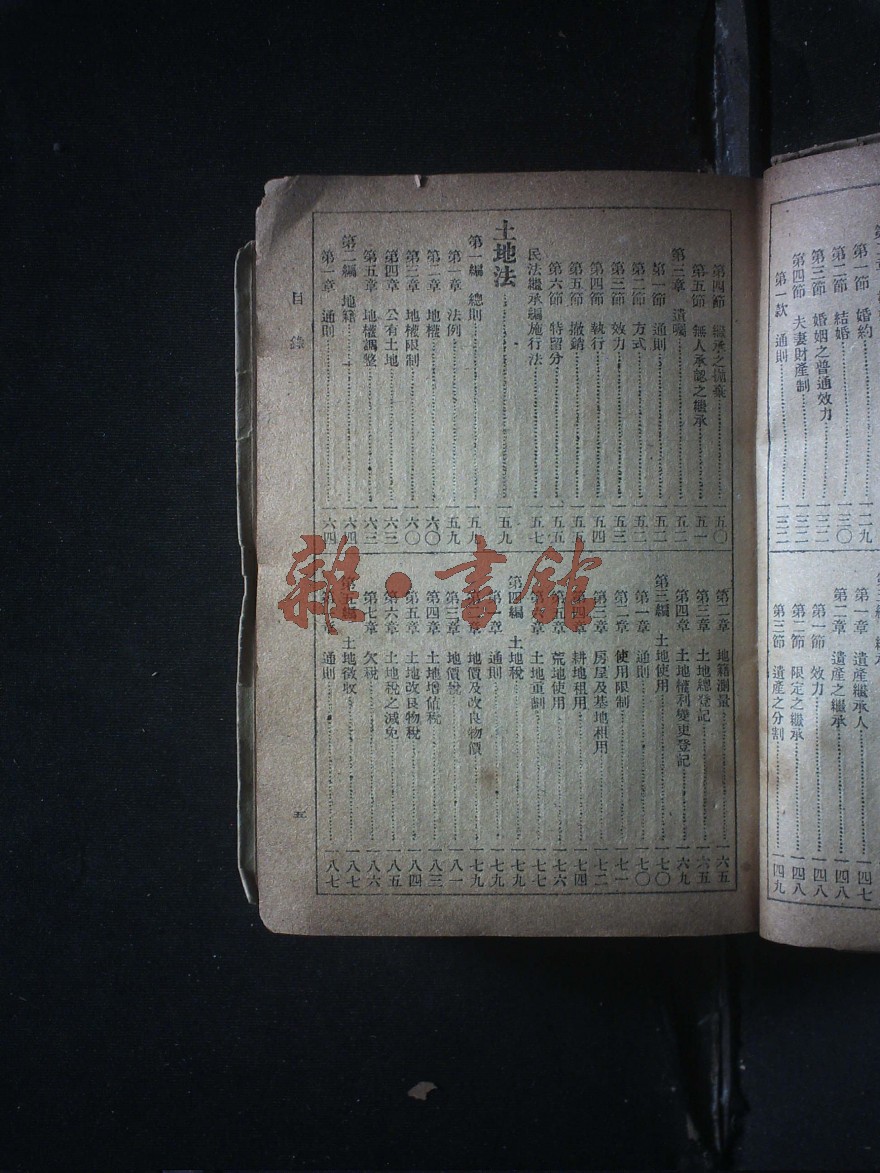 第一節 婚約 一二九
第二節 結婚 一三〇
第三節 婚姻之普通效力 一三二
第四節 夫妻財產制 一三二
第一款 通則 一三二
第一章 遺產繼承人 一四七
第二章 遺產之繼承 一四八
第一節 效力 一四八
第二節 限定之繼承 一四八
第三節 遺產之分割 一四九
第四節 繼承之拋棄 一五〇
第五節 無人承認之繼承 一五一
第三章 遺囑 一五二
第一節 通則 一五二
第二節 方式 一五二
第三節 效力 一五三
第四節 執行 一五四
第五節 撤銷 一五五
第六節 特留分 一五五
民法繼承編施行法 一五七
土地法 一五九
第一編 總則 一五九
第一章 法例 一五九
第二章 地權 一六〇
第三章 地權限制 一六〇
第四章 公有土地 一六三
第五章 地權調整 一六三
第二編 地籍 一六四
第一章 通則 一六四
第二章 地籍測量 一六五
第三章 土地總登記 一六五
第四章 土地權利變更登記 一六九
第三編 土地使用 一七〇
第一章 通則 一七〇
第二章 使用限制 一七一
第三章 房屋及基地租用 一七二
第四章 耕地租用 一七四
第五章 荒地使用 一七六
第六章 土地重劃 一七七
第四編 土地稅 一七九
第一章 通則 一七九
第二章 地價及改良物價 一七九
第三章 地價稅 一八一
第四章 土地增值稅 一八三
第五章 土地改良物稅 一八四
第六章 土地稅之減免 一八五
第七章 欠稅 一八六
第五編 土地徵收 一八七
第一章 通則 一八七
目錄
五
雜·書館